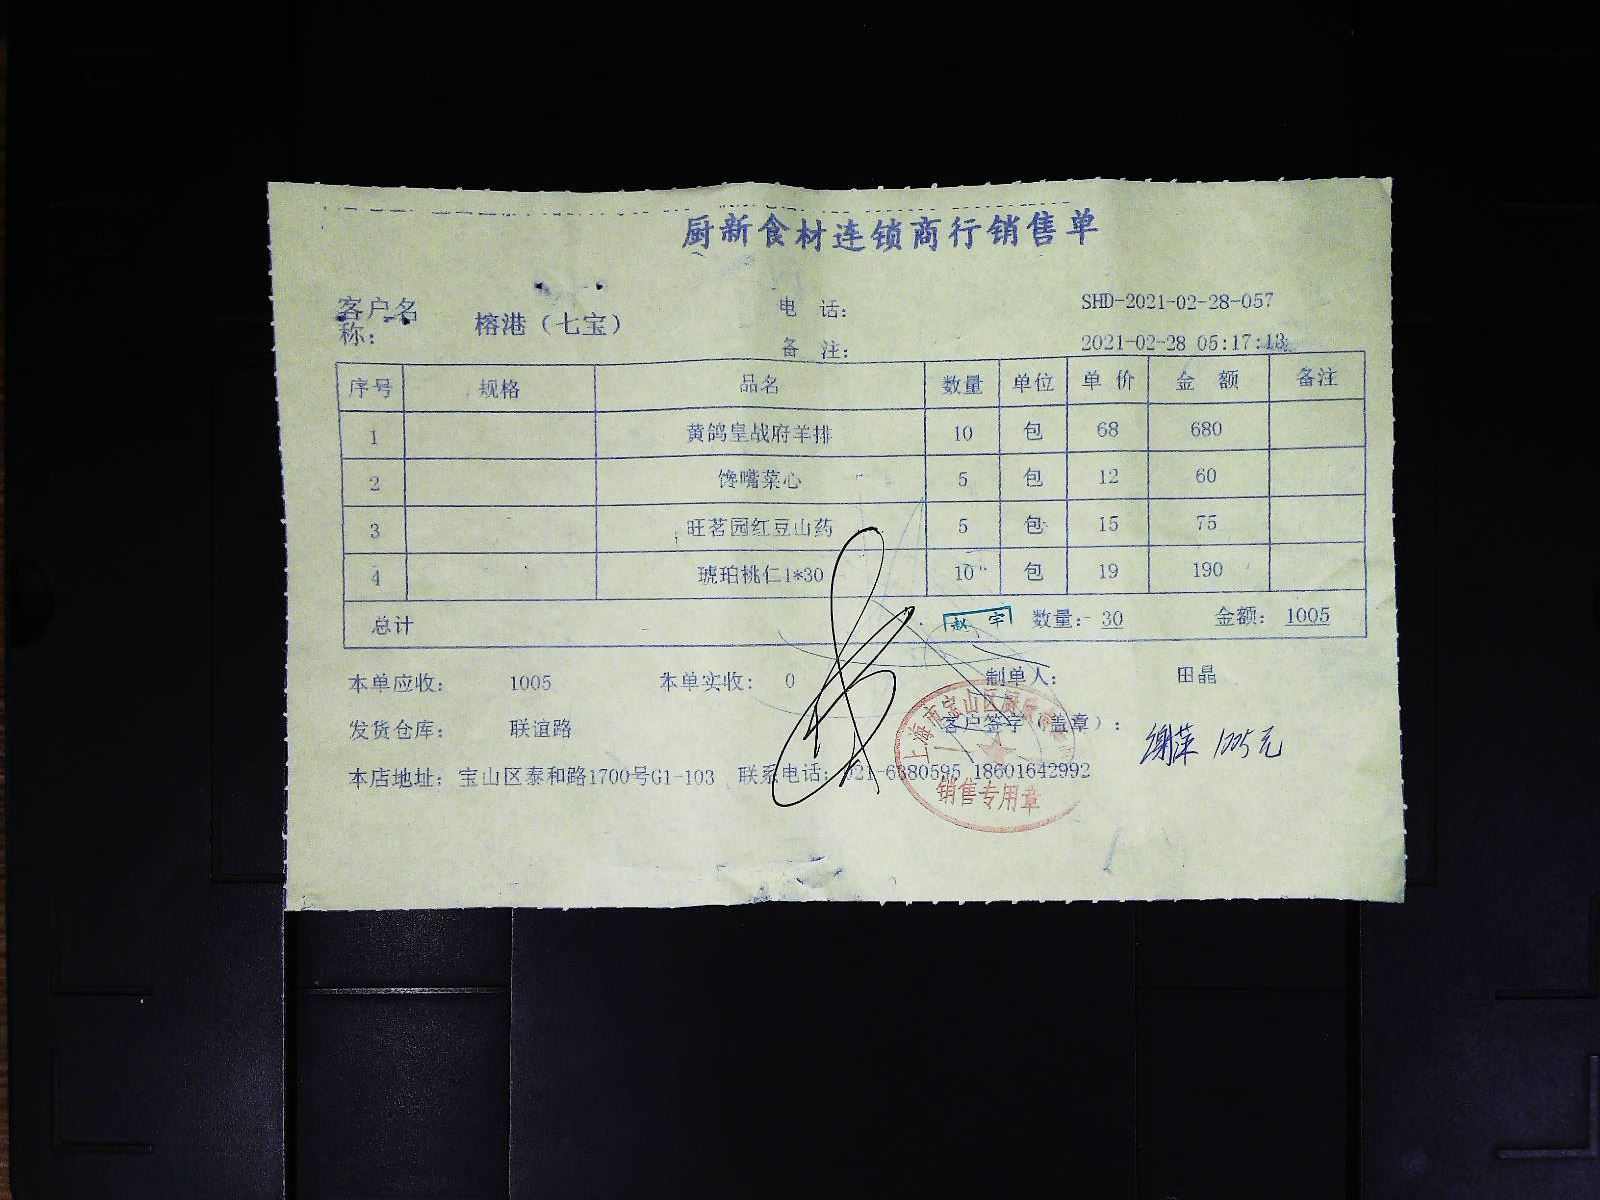 厨新食材连锁商行销售单
客户名称： 榕港（七宝） 电 话： SHD-2021-02-28-057
备 注： 2021-02-28 05:17:13
序号 规格 品名 数量 单位 单 价 金 额 备注
1 黄鸽皇战府羊排 10 包 68 680
2 馋嘴菜心 5 包 12 60
3 旺茗园红豆山药 5 包 15 75
4 琥珀桃仁1*30 10 包 19 190
总计 赵宇 数量： 30 金额： 1005
本单应收： 1005 本单实收： 0 制单人： 田晶
发货仓库： 联谊路 客户签字（盖章）： 谢萍 1005元
本店地址：宝山区泰和路1700号G1-103 联系电话：021-6680595 18601642992
上海市宝山区
销售专用章